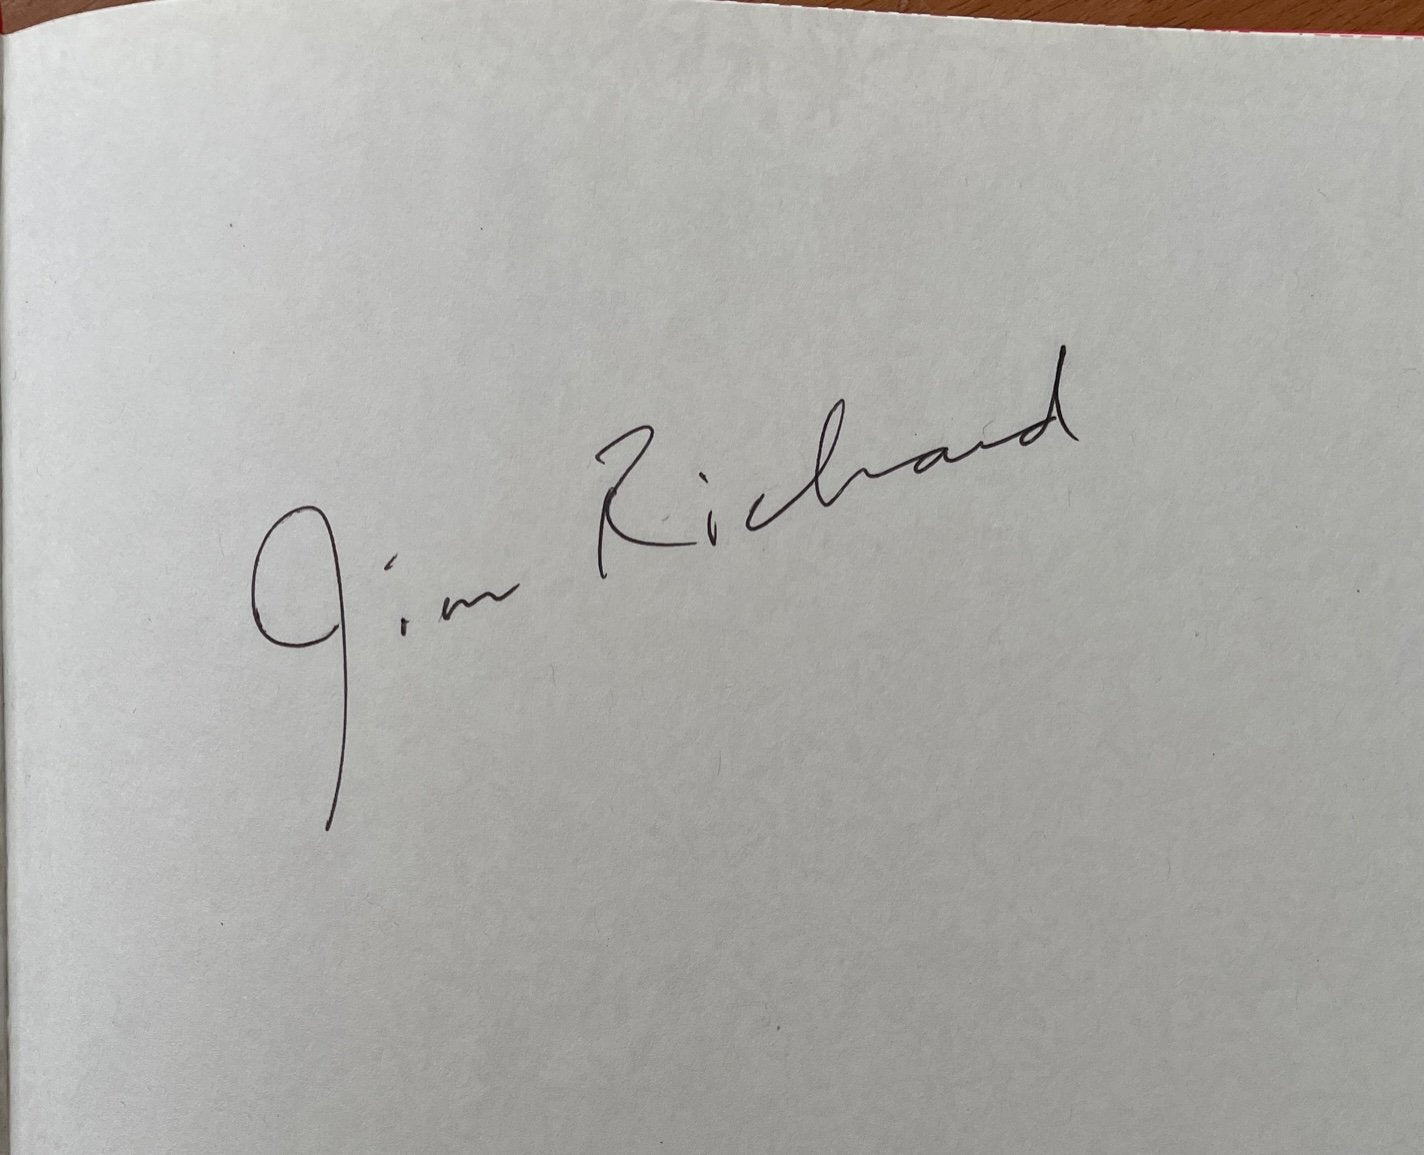 Jim Richard